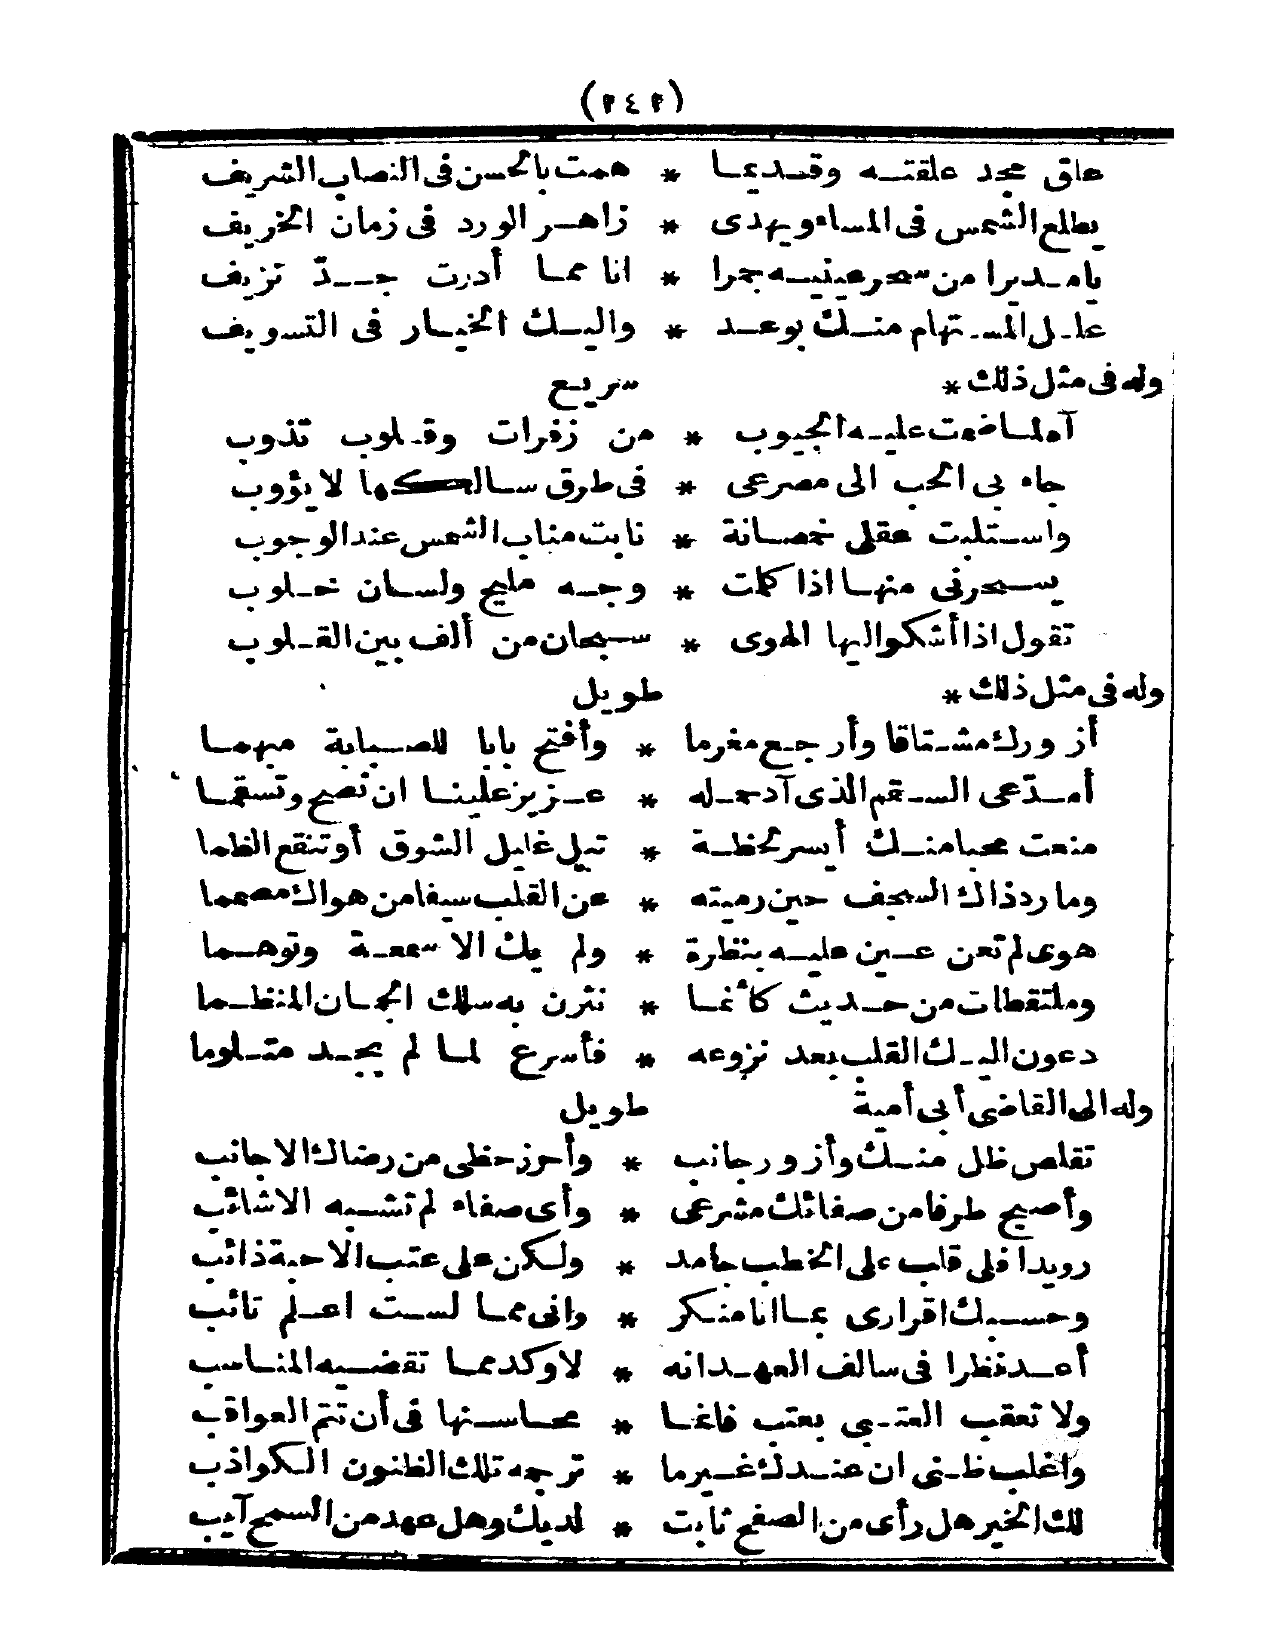 (٢٤٢)
علق مجد علقتــه وقــديمــا * همت بالحسن فى النصاب الشريف
يطلع الشمس فى المساء ويهدى * زاهــر الورد فى زمان الخريف
يا مــديرا من سحر عينيــه خمرا * انا ممــا أدرت جــدّ نزيف
علــل المستهام منــك بوعــد * واليــك الخيــار فى التسويف
وله فى مثل ذلك * سريع
آه لمــا ضمت عليــه الجيوب * من زفرات وقــلوب تذوب
جاء بى الحب الى مصرعى * فى طرق ســالكها لا يؤوب
واســتلبت عقلى خمصــانة * نابت مناب الشمس عند الوجوب
يســحرنى منهــا اذا كلمت * وجــه مليح ولســان خــلوب
تقول اذا أشكو اليها الهوى * ســبحان من ألف بين القــلوب
وله فى مثل ذلك * طويل
أزورك مشــتاقا وأرجــع مغرما * وأفتح بابا للصــبابة مبهمــا
أمــدّعى الســقم الذى آد حمــله * عــزيز علينــا ان نصح وتسقمــا
منعت محبا منــك أيسر لحظــة * تبل غليل الشوق أو تنقع الظما
وما رد ذاك السجف حين رميته * عن القلب سيفا من هواك مصمما
هوى لم تعن عــين عليــه بنظرة * ولم يك الا سمعــة وتوهــما
وملتقطات من حــديث كأنمــا * نثرن به سلك الجمــان المنظــما
دعون اليــك القلب بعد نزوعه * فأسرع لمــا لم يجــد متــلوما
وله الى القاضى أبى أمية طويل
تقلص ظل منــك وأزور جانب * وأحرز حظى من رضاك الاجانب
وأصبح طرفا من صفائك مشرعى * وأى صفاء لم تشــبه الاشائب
رويدا فلى قلب على الخطب جامد * ولكن على عتب الاحبة ذائب
وحســبك اقرارى بمــا انا منــكر * وانى ممــا لســت اعــلم تائب
أعــد نظرا فى سالف العهــد انه * لاوكد ممــا تقضــيه المناسب
ولا تعقب العتــبى بعتب فانمــا * محــاسنها فى أن تتم العواقب
واغلب ظــنى ان عنــدك غــير ما * ترجمه تلك الظنون الكواذب
لك الخير هل رأى من الصفح ثابت * لديك وهل عهد من السمح آيب